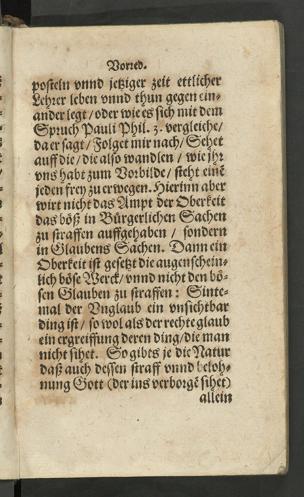 Vorred.
posteln vnnd jetziger zeit ettlicher
Lehrer leben vnnd thun gegen ein-
ander legt / oder wie es sich mit dem
Spruch Pauli Phil. 3. vergleiche /
da er sagt / Folget mir nach / Sehet
auff die / die also wandlen / wie jhr
vns habt zum Vorbilde / steht einē
jeden frey zu erwegen. Hierinn aber
wirt nicht das Ampt der Oberkeit
das böß in Bürgerlichen Sachen
zu straffen auffgehaben / sondern
in Glaubens Sachen. Dann ein
Oberkeit ist gesetzt die augenschein-
lich böse Werck / vnnd nicht den bö-
sen Glauben zu straffen: Sinte-
mal der Vnglaub ein vnsichtbar
ding ist / so wol als der rechte glaub
ein ergreiffung deren ding / die man
nicht sihet. So gibts je die Natur
daß auch dessen straff vnnd beloh-
nung Gott (der ins verborgē sihet)
allein